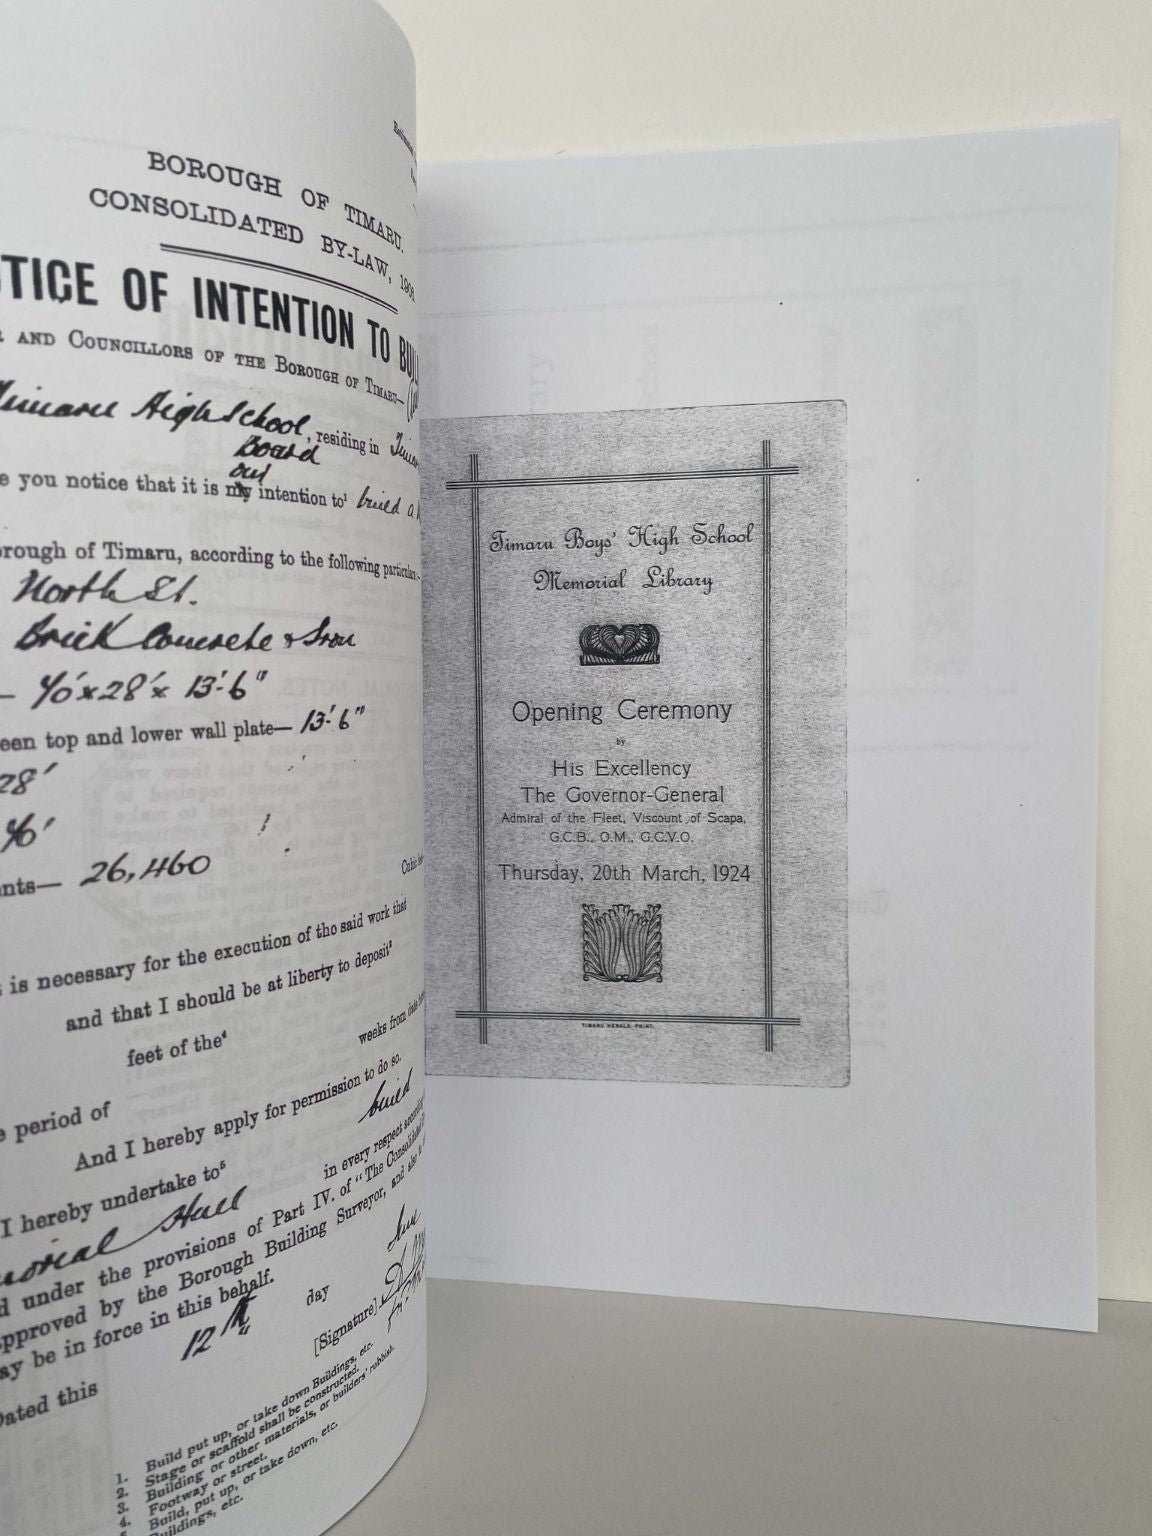 BOROUGH OF TIMARU.
CONSOLIDATED BY-LAW, 1908
OTICE OF INTENTION TO BUIL
AND COUNCILLORS OF THE BOROUGH OF TIMARU—
Timaru High School, residing in
Board
our
e you notice that it is my intention to¹ build a
orough of Timaru, according to the following particulars:—
North St.
Brick Concrete & Iron
— 70' x 28' x 13'-6"
een top and lower wall plate— 13'-6"
28'
nts— 26,460 Cubic
t is necessary for the execution of the said work that
and that I should be at liberty to deposit³
feet of the⁴
weeks from date
e period of
And I hereby apply for permission to do so.
I hereby undertake to⁵ build
morial Hall in every respect according
d under the provisions of Part IV. of "The Consolidated
approved by the Borough Building Surveyor, and also
ay be in force in this behalf.
Dated this 12th day
[Signature]
1. Build put up, or take down Buildings, etc.
2. Stage or scaffold shall be constructed.
3. Building or other materials, or builders' rubbish.
4. Footway or street.
5. Build, put up, or take down, etc.
Buildings, etc.
Timaru Boys' High School
Memorial Library
Opening Ceremony
by
His Excellency
The Governor-General
Admiral of the Fleet, Viscount of Scapa,
G.C.B., O.M., G.C.V.O.
Thursday, 20th March, 1924
TIMARU HERALD, PRINT.